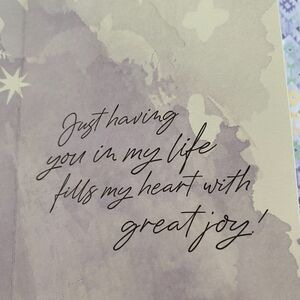 Just having
you in my life
fills my heart with
great joy!